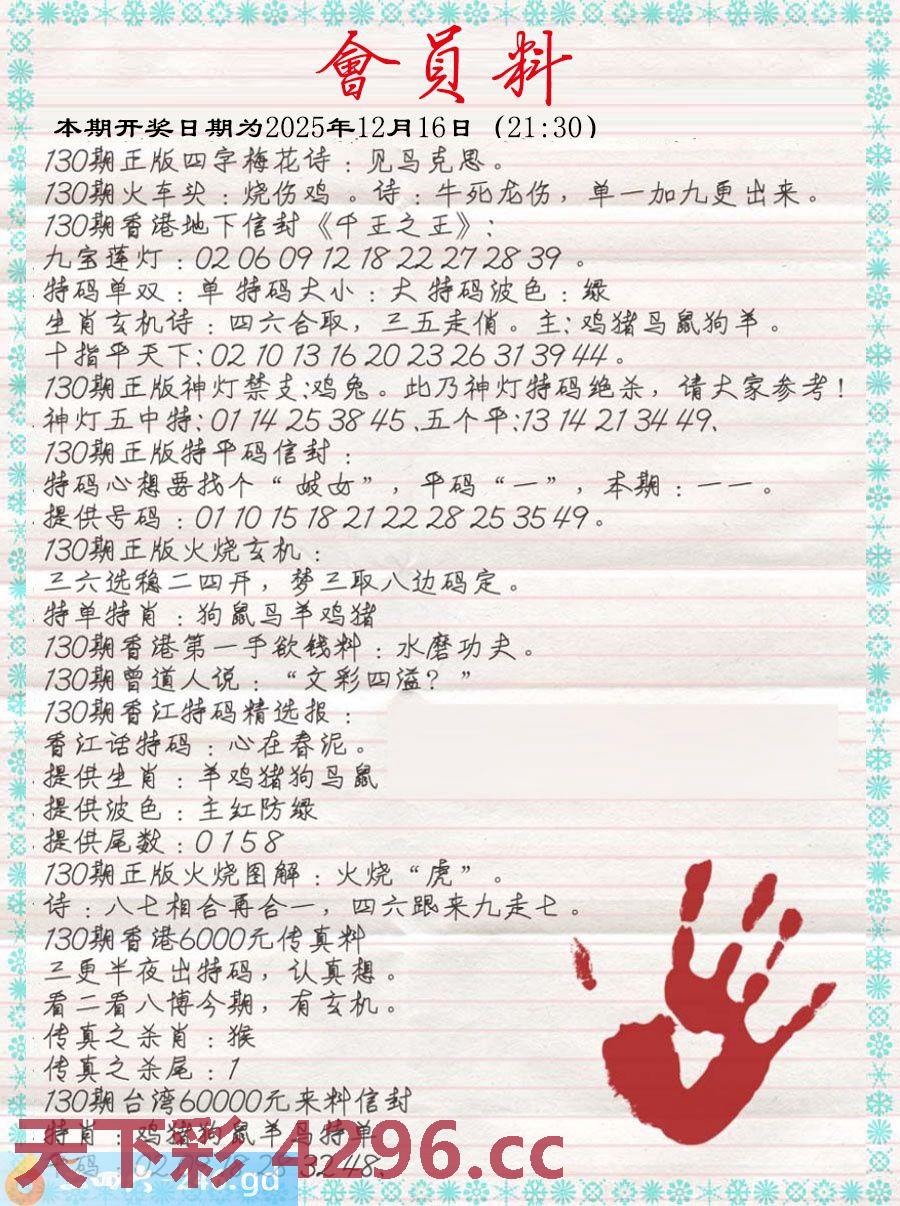 會員料
本期开奖日期为2025年12月16日（21:30）
130期正版四字梅花诗：见鸟克思。
130期火车头：烧伤鸡。诗：牛死龙伤，单一加九更出来。
130期香港地下信封《千王之王》:
九宝莲灯：02 06 09 12 18 22 27 28 39 。
特码单双：单 特码大小：大 特码波色：绿
生肖玄机诗：四六合取，三五走俏。主:鸡猪马鼠狗羊。
十指平天下:02 10 13 16 20 23 26 31 39 44。
130期正版神灯禁支:鸡兔。此乃神灯特码绝杀，请大家参考！
神灯五中特:01 14 25 38 45、五个平:13 14 21 34 49、
130期正版特平码信封：
特码心想要找个“妓女”，平码“一”，本期：一一。
提供号码：01 10 15 18 21 22 28 25 35 49。
130期正版火烧玄机：
三六选稳二四开，梦三取八边码定。
特单特肖：狗鼠马羊鸡猪
130期香港第一手欲钱料：水磨功夫。
130期曾道人说：“文彩四溢？”
130期香江特码精选报：
香江话特码：心在春泥。
提供生肖：羊鸡猪狗马鼠
提供波色：主红防绿
提供尾数：0 1 5 8
130期正版火烧图解：火烧“虎”。
诗：八七相合再合一，四六跟来九走七。
130期香港6000元传真料
三更半夜出特码，认真想。
看二看八博今期，有玄机。
传真之杀肖：猴
传真之杀尾：1
130期台湾60000元来料信封
特肖：鸡猪狗鼠羊马特单
天下彩4296.cc
32 48、